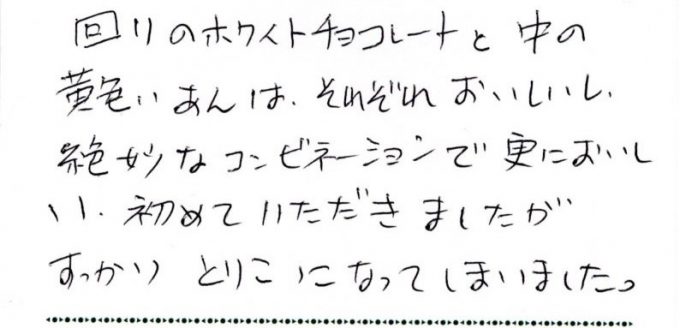 回りのホワイトチョコレートと中の
黄色いあんは、それぞれおいしいし、
絶妙なコンビネーションで更においし
い、初めていただきましたが
すっかりとりこになってしまいました。